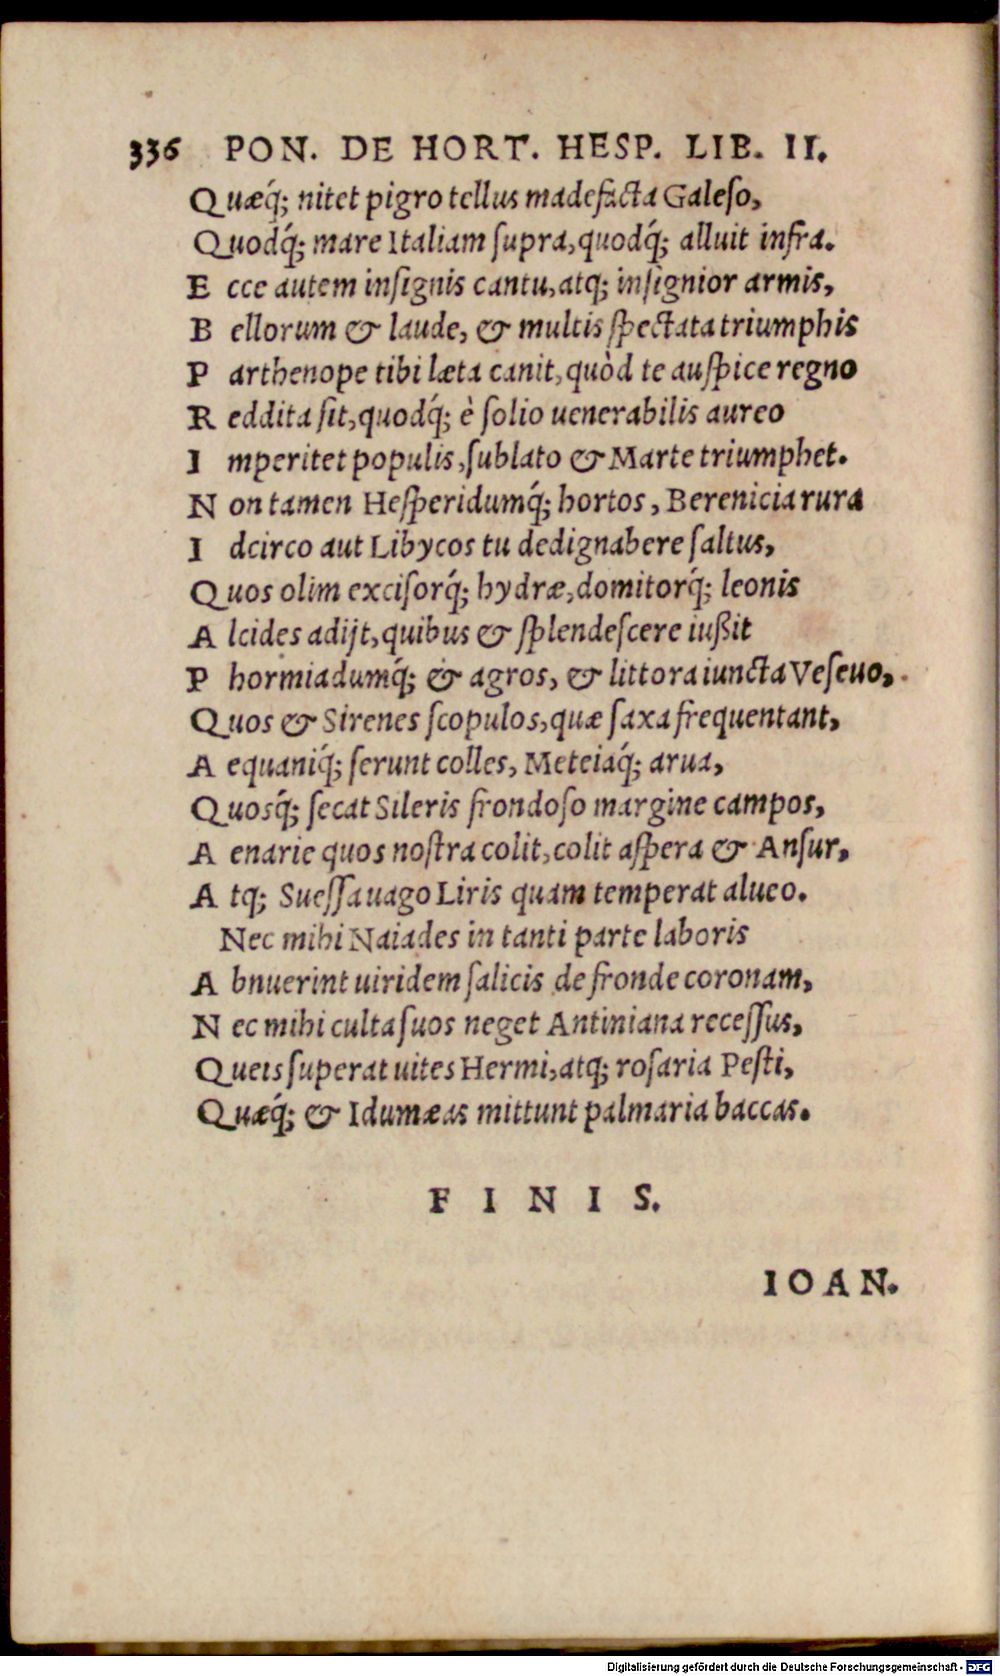 336 PON. DE HORT. HESP. LIB. II.
Quæq́; nitet pigro tellus madefacta Galeſo,
Quodq́; mare Italiam ſupra, quodq́; alluit infra.
E cce autem inſignis cantu, atq; inſignior armis,
B ellorum & laude, & multis ſpectata triumphis
P arthenope tibi læta canit, quòd te auſpice regno
R eddita ſit, quodq́; è ſolio uenerabilis aureo
I mperitet populis, ſublato & Marte triumphet.
N on tamen Heſperidumq́; hortos, Berenicia rura
I dcirco aut Libycos tu dedignabere ſaltus,
Quos olim exciſorq́; hydræ, domitorq́; leonis
A lcides adijt, quibus & ſplendeſcere iußit
P hormiadumq́; & agros, & littora iuncta Veſeuo,
Quos & Sirenes ſcopulos, quæ ſaxa frequentant,
A equaniq́; ſerunt colles, Meteiaq́; arua,
Quosq́; ſecat Sileris frondoſo margine campos,
A enarie quos noſtra colit, colit aſpera & Anſur,
A tq; Sueſſa uago Liris quam temperat alueo.
Nec mihi Naiades in tanti parte laboris
A bnuerint uiridem ſalicis de fronde coronam,
N ec mihi culta ſuos neget Antiniana receſſus,
Queis ſuperat uites Hermi, atq; roſaria Peſti,
Quæq́; & Idumæas mittunt palmaria baccas.
F I N I S.
IOAN.
Digitalisierung gefördert durch die Deutsche Forschungsgemeinschaft - DFG